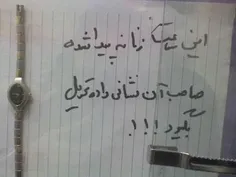 این ساعت زنانه پیدا شده
صاحب آن نشانی داده تحویل
بگیرد!!!.